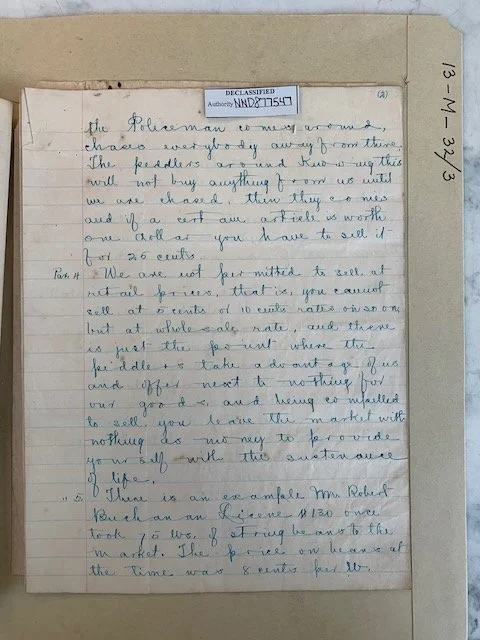 DECLASSIFIED
Authority NND877547
(2)
13-M-32/3
the Policeman comes around,
chases everybody away from there.
The peddlers around knowing this
will not buy anything from us until
we are chased, then they comes
and if a certain article is worth
one dollar you have to sell it
for 25 cents.
Par. 4 We are not permitted to sell at
retail prices, that is, you cannot
sell at 5 cents or 10 cents rates or so on
but at whole sale rate, and there
is just the point where the
peddlers take advantage of us
and offer next to nothing for
our goods, and being compelled
to sell, you leave the market with
nothing as money to provide
yourself with the sustenance
of life.
" 5. There is an example Mr. Robert
Buchanan License #130 once
took 75 lbs. of string beans to the
market. The price on beans at
the time was 8 cents per lb.